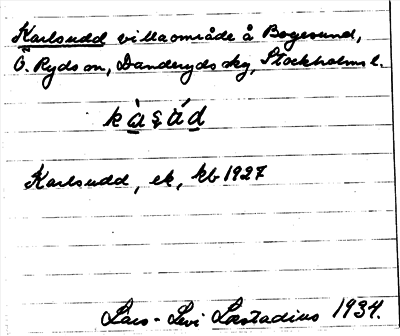 Karlsudd villaområde å Bogesund,
Ö. Ryds sn, Danderyds skg, Stockholms l.
kàsád
Karlsudd, ek, kb 1927
Lars-Levi Læstadius 1934.